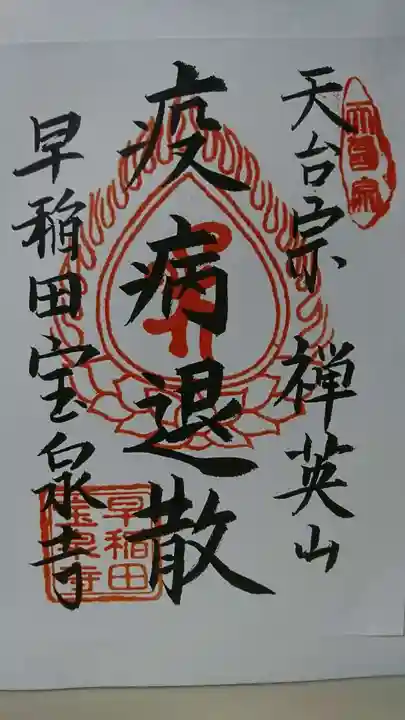 天台宗
天台宗 禅英山
疫病退散
早稲田宝泉寺
早稲田
宝泉寺